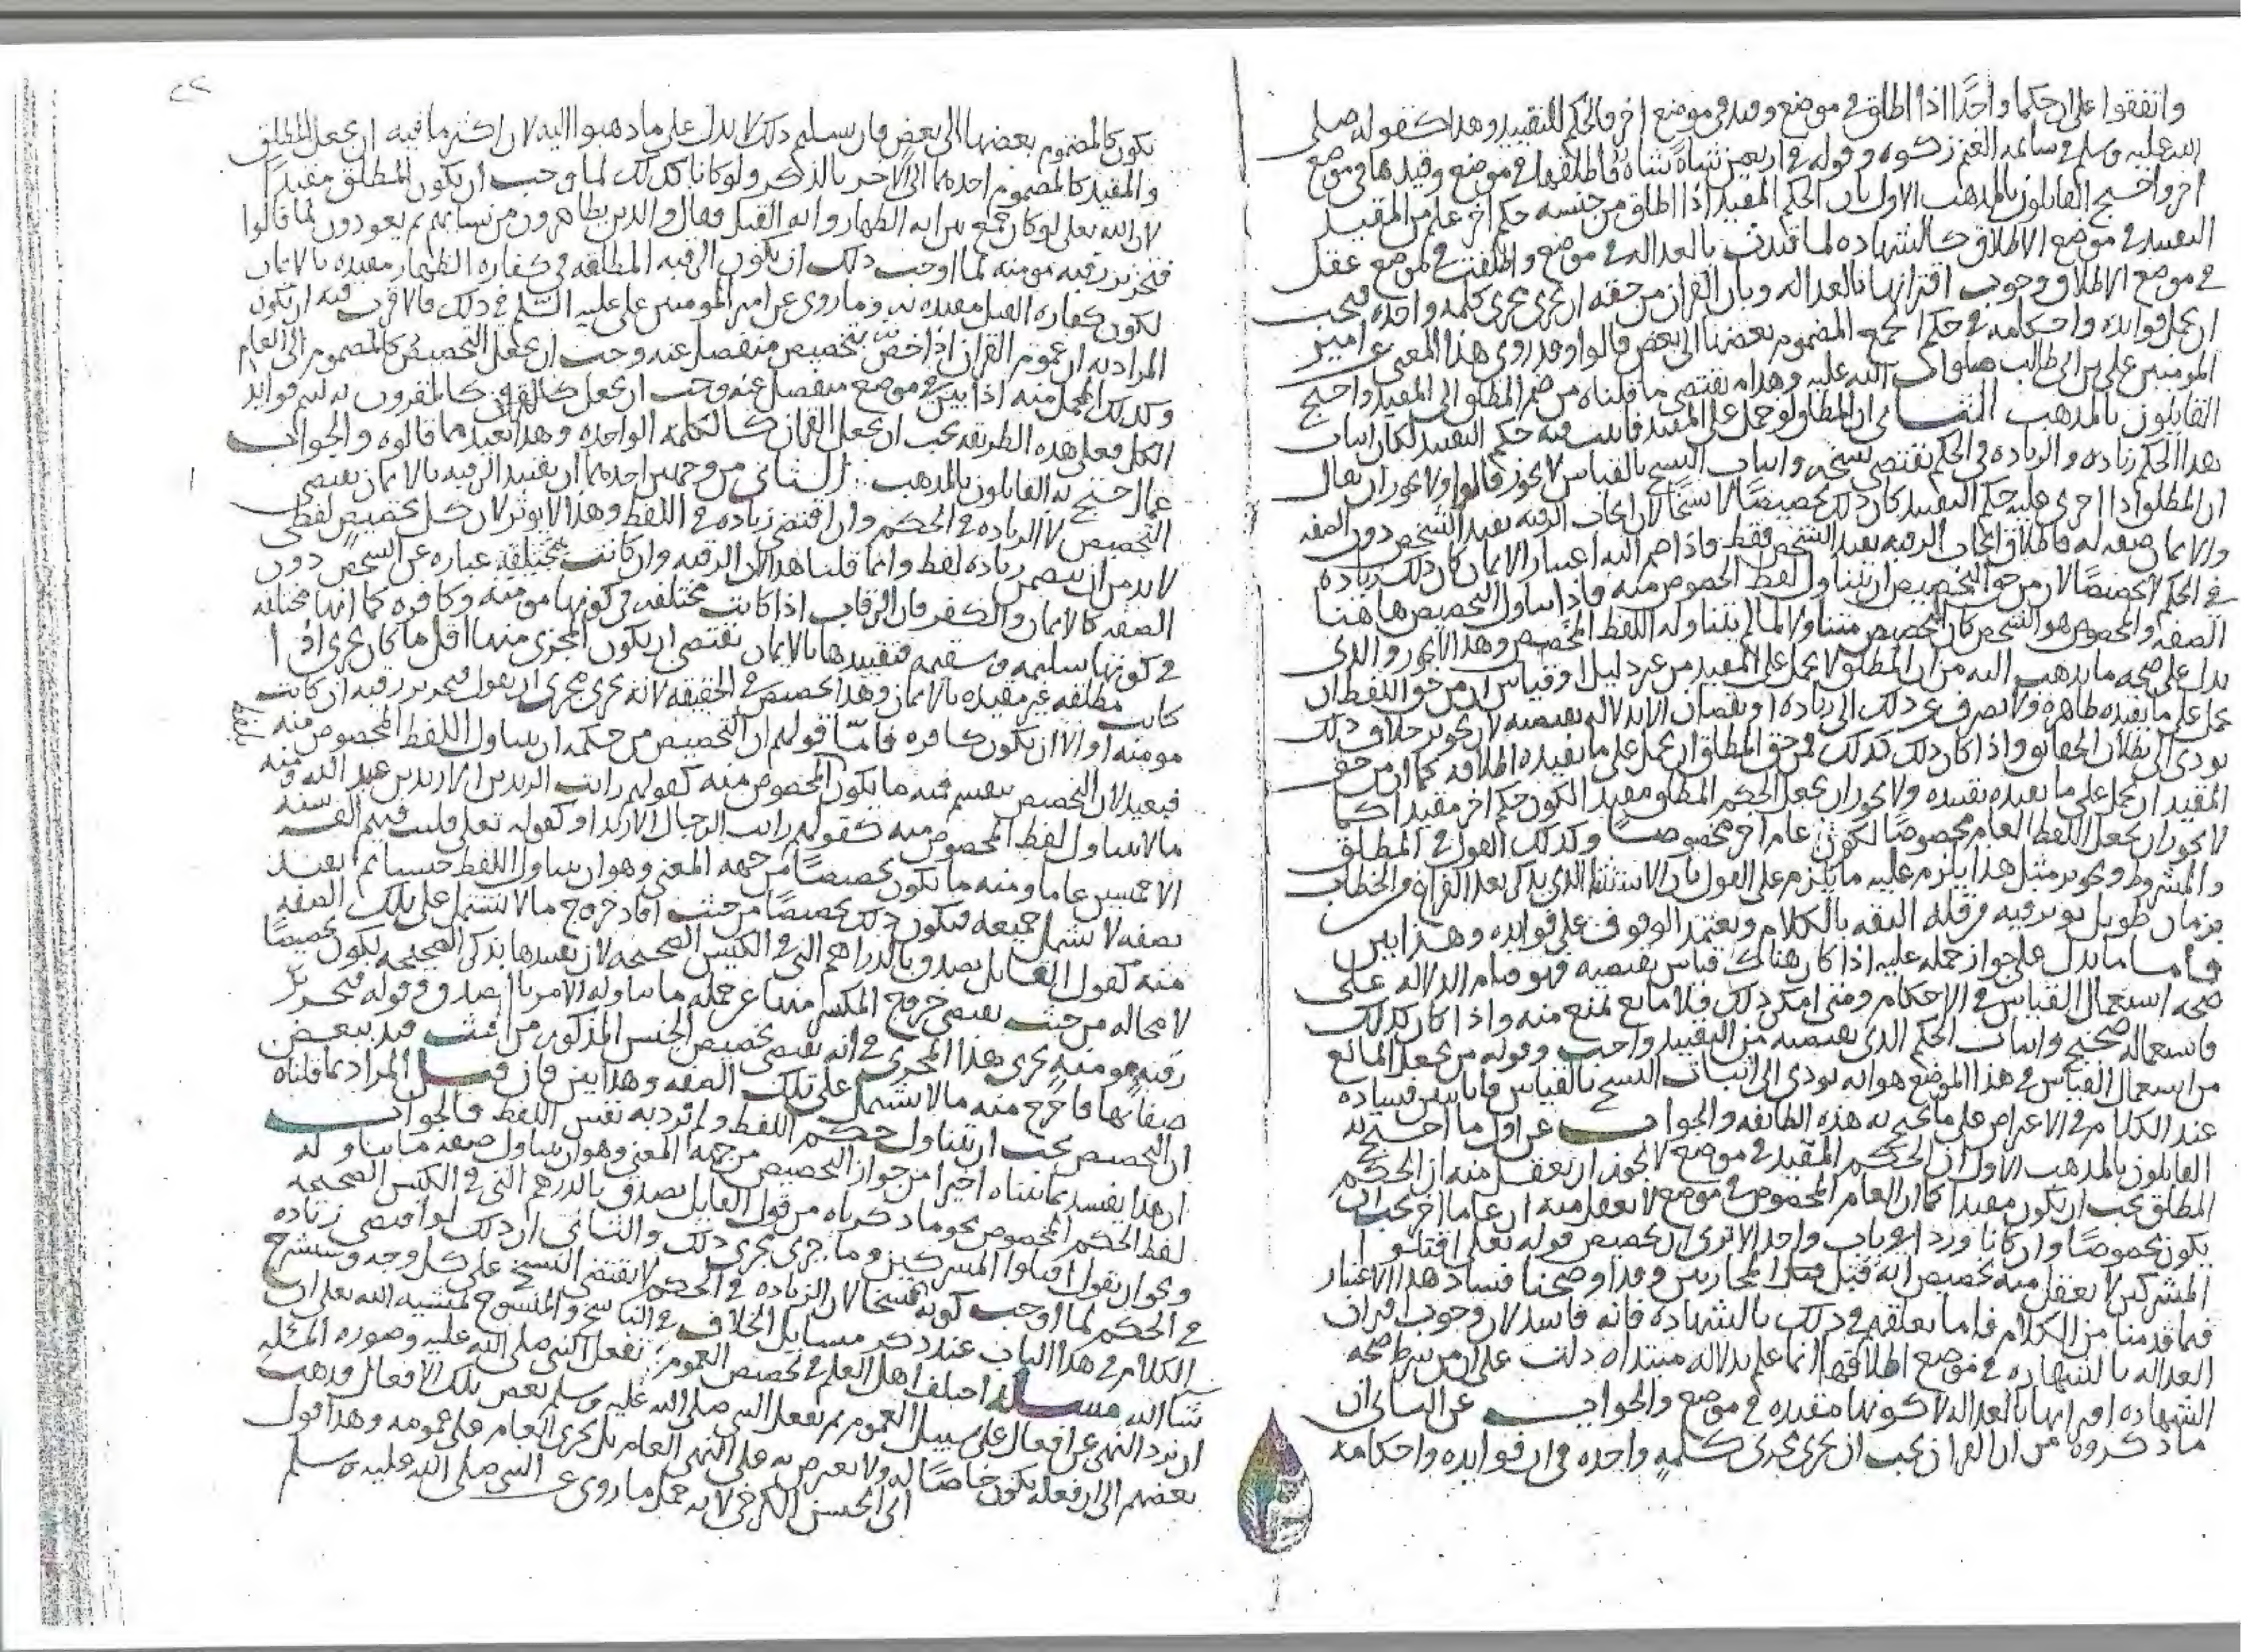 واتفقوا على ان حكما واحدا اذا اطلق في موضع وقيد في موضع اخر فالحكم للتقييد وهذا كقوله صلى
الله عليه وسلم في سائمة الغنم زكوه وقوله في اربعين شاة شاة فاطلقها في موضع وقيدها في موضع
اخر واحتج القايلون بالمذهب الاول بان الحكم المقيد اذا اطلق من جنسه حكم اخر علم من المقيد
التقييد في موضع الاطلاق كالشهاده لما قيدت بالعداله في موضع واطلقت في موضع عقل
في موضع الاطلاق وجوب اقترانها بالعداله وبان القران من حقه ان يجرى مجرى كلمه واحده فيجب
ان يجعل فوايده واحكامه في حكم المضموم بعضها الى بعض قالوا وقد روى هذا المعنى عن امير
المومنين على بن ابى طالب صلوات الله عليه وهذا يقتضى ما قلناه من ضم المطلق الى المقيد واحتج
القايلون بالمذهب الثانى ان المطلق لو حمل على المقيد فاثبت فيه حكم التقييد لكان اثبات
هذا الحكم زياده والزياده في الحكم تقتضى نسخه واثبات النسخ بالقياس لا يجوز قالوا ولا يجوز ان يقال
ان المطلق اذا اجرى عليه حكم التقييد كان ذلك تخصيصا لا نسخا لان ايجاب الرقبه يفيد الشخص دون الصفه
والايمان صفه له فاطلاق ايجاب الرقبه يفيد الشخص فقط فاذا ضم اليه اعتبار الايمان كان ذلك زياده
في الحكم لا تخصيصا لان من حق التخصيص ان يتناول لفظ المخصوص منه فاذا تناول التخصيص هاهنا
الصفه والمخصوص هو الشخص كان التخصيص متناولا لما لم يتناوله اللفظ المخصص وهذا لا يجوز والذى
يدل على صحه ما يذهب اليه من ان المطلق لا يحمل على المقيد من غير دليل او قياس ان من حق اللفظ ان
يحمل على ما يفيده ظاهره ولا يصرف عن ذلك الى زياده او نقصان الا بدلاله تقتضيه لان تجويز خلاف ذلك
يودى الى بطلان الحقايق واذا كان ذلك كذلك فمن حق المطلق ان يحمل على ما يفيده اطلاقه كما ان من حق
المقيد ان يحمل على ما يفيده تقييده ولا يجوز ان يجعل الحكم المطلق مقيدا لكون حكم اخر مقيدا كما
لا يجوز ان يجعل اللفظ العام مخصوصا لكون عام اخر مخصوصا وكذلك القول في المطلق
والمشروط وتجويز مثل هذا يلزم عليه ما يلزم على القول بان الاستثنا الذى يذكر بعد الفراغ من الخطاب
بزمان طويل يوثر فيه من قله الثقه بالكلام وتعتمد الوقوف على فوايده وهذا بين
فاما ما يدل على جواز حمله عليه اذا كان هناك قياس يقتضيه فهو قيام الدلاله على
صحه استعمال القياس في الاحكام ومتى امكن ذلك فلا مانع يمنع منه واذا كان كذلك
فاستعماله صحيح واثبات الحكم الذى يقتضيه من التقييد واجب وقوله من يجعل المانع
من استعمال القياس في هذا الموضع هو انه يودى الى اثبات النسخ بالقياس فانا نبين فساده
عند الكلام في الاعتراض على ما يحتج به هذه الطايفه والجواب عن اول ما احتج به
القايلون بالمذهب الاول ان الحكم المقيد في موضع لا يجوز ان يعقل منه ان الحكم
المطلق يجب ان يكون مقيدا كما ان العام المخصوص في موضع لا يعقل منه ان عاما اخر يجب ان
يكون مخصوصا وان كانا وردا في باب واحد الا ترى ان تخصيص قوله تعالى اقتلوا
المشركين لا يعقل منه تخصيص ايه قتل قتال المحاربين وقد اوضحنا فساد هذا الاعتبار
فيما قدمنا من الكلام فاما تعلقهم في ذلك بالشهاده فانه فاسد لان وجوب اقتران
العداله بالشهاده في موضع اطلاقها انما علم بدلاله مبتداه دلت على ان من شرط صحه
الشهاده اقترانها بالعداله لا كونها مقيده في موضع والجواب عن الثانى ان
ما ذكروه من ان القران يجب ان يجرى مجرى كلمه واحده في ان فوايده واحكامه
٢٢
يكون كالمضموم بعضها الى بعض فان سلم ذلك لا يدل على ما ذهبوا اليه لان اكثر ما فيه ان يجعل المطلق
والمقيد كالمضموم احدهما الى الاخر بالذكر ولو كانا كذلك لما وجب ان يكون المطلق مقيدا
لان الله تعالى لو كان جمع بين ايه الظهار وايه القتل فقال والذين يظاهرون من نسايهم ثم يعودون لما قالوا
فتحرير رقبه مومنه لما اوجب ذلك ان يكون الرقبه المطلقه في كفاره الظهار مقيده بالايمان
لكون كفاره القتل مقيده به وما روى عن امير المومنين على عليه السلم في ذلك فالاقرب فيه ان يكون
المراد به ان عموم القران اذا خص بتخصيص منفصل عنه وجب ان يجعل التخصيص كالمضموم الى العام
وكذلك المجمل منه اذا بين في موضع منفصل عنه وجب ان يجعل كالمقرون به لبين فوايد
الكل فعلى هذه الطريقه يجب ان يجعل القران كالكلمه الواحده وهذا بعيد مما قالوه والجواب
عما احتج به القايلون بالمذهب الثانى من وجهين احدهما ان تقييد الرقبه بالايمان يقتضى
التخصيص لا الزياده في الحكم وان اقتضى زياده في اللفظ وهذا لا يوثر لان كل تخصيص لفظى
لا بد من ان يتضمن زياده لفظ وانما قلنا هذا لان الرقبه وان كانت عباره عن الشخص دون
الصفه كالايمان والكفر فان الرقاب اذا كانت مختلفه في كونها مومنه وكافره كما انها مختلفه
في كونها سليمه وسقيمه فتقييدها بالايمان يقتضى ان يكون المجزى منها اقل مما كان يجزى اذا
كانت مطلقه غير مقيده بالايمان وهذا تخصيص في الحقيقه لانه يجرى مجرى ان يقول فتحرير رقبه ان كانت
مومنه او الا ان يكون كافره فاما قولهم ان التخصيص من حكمه ان يتناول اللفظ المخصوص منه
فبعيد لان التخصيص ينقسم فمنه ما يكون المخصوص منه كقولهم رايت الزيدين الا زيد بن عبد الله ومنه
ما لا يتناول لفظ المخصوص منه كقولهم رايت الرجال الا زيدا وكقوله تعالى فلبث فيهم الف سنه
الا خمسين عاما ومنه ما يكون تخصيصا من جهه المعنى وهو ان يتناول اللفظ جنسا ثم يقيد
بصفه لا تشمل جميعه فيكون ذلك تخصيصا من حيث افاد خروج ما لا يشتمل على تلك الصفه
منه كقول القايل تصدق بالدراهم التى في الكيس الصحيحه لان تقييدها بذكر الصحيحه يكون تخصيصا
لا محاله من حيث يقتضى خروج المكسر منها عن جمله ما تناوله الامر بالتصدق وقوله فتحرير
رقبه مومنه يجرى هذا المجرى في انه يقتضى تخصيص الجنس المذكور من حيث قيد ببعض
صفاتها فاخرج منه ما لا يشتمل على تلك الصفه وهذا بين فان قيل المراد بما قلناه
ان التخصيص يجب ان يتناول حكم اللفظ ولم نرد به نفس اللفظ فالجواب
ان هذا يفسد بما بيناه اخيرا من جواز التخصيص من جهه المعنى وهو ان يتناول صفه ما يتناوله
لفظ الحكم المخصوص نحو ما ذكرناه من قول القايل تصدق بالدرهم التى في الكيس الصحيحه
ونحو ان نقول اقتلوا المشركين وما جرى مجرى ذلك والثانى ان ذلك لو اقتضى زياده
في الحكم لما اوجب كونه نسخا لان الزياده في الحكم لا تقتضى النسخ على كل وجه وسنشرح
الكلام في هذا الباب عند ذكر مسايل الخلاف في الناسخ والمنسوخ لمشيه الله تعالى ان
شا الله مسله اختلف اهل العلم في تخصيص العموم بفعل النبى صلى الله عليه وصوره المسله
ان يرد النهى عن افعال على سبيل العموم ثم يفعل النبى صلى الله عليه وسلم بعض تلك الافعال فذهب
بعضهم الى ان فعله يكون خاصا له ولا يعترض به على النهى العام بل يجرى العام على عمومه وهذا قول
ابى الحسن الكرخى لانه حمل ما روى عن النبى صلى الله عليه وسلم